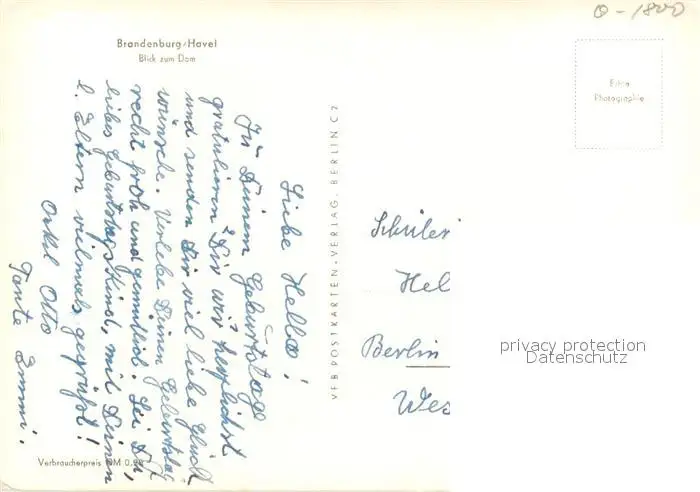 O-1800
Brandenburg/Havel
Blick zum Dom
Echte
Photographie
Liebe Hella!
Zu Deinem Geburtstage
gratulieren Dir wir herzlichst
und senden Dir viel liebe Glück
wünsche. Verlebe Deinen Geburtstag
recht froh und gemütlich. Sei Du,
liebes Geburtstagskind, mit Deinen
l. Eltern vielmals gegrüßt!
Onkel Otto
Tante Emmi.
VEB POSTKARTEN-VERLAG, BERLIN C 2
Schüler
Hel
Berlin
Wes
privacy protection
Datenschutz
Verbraucherpreis DM 0,20